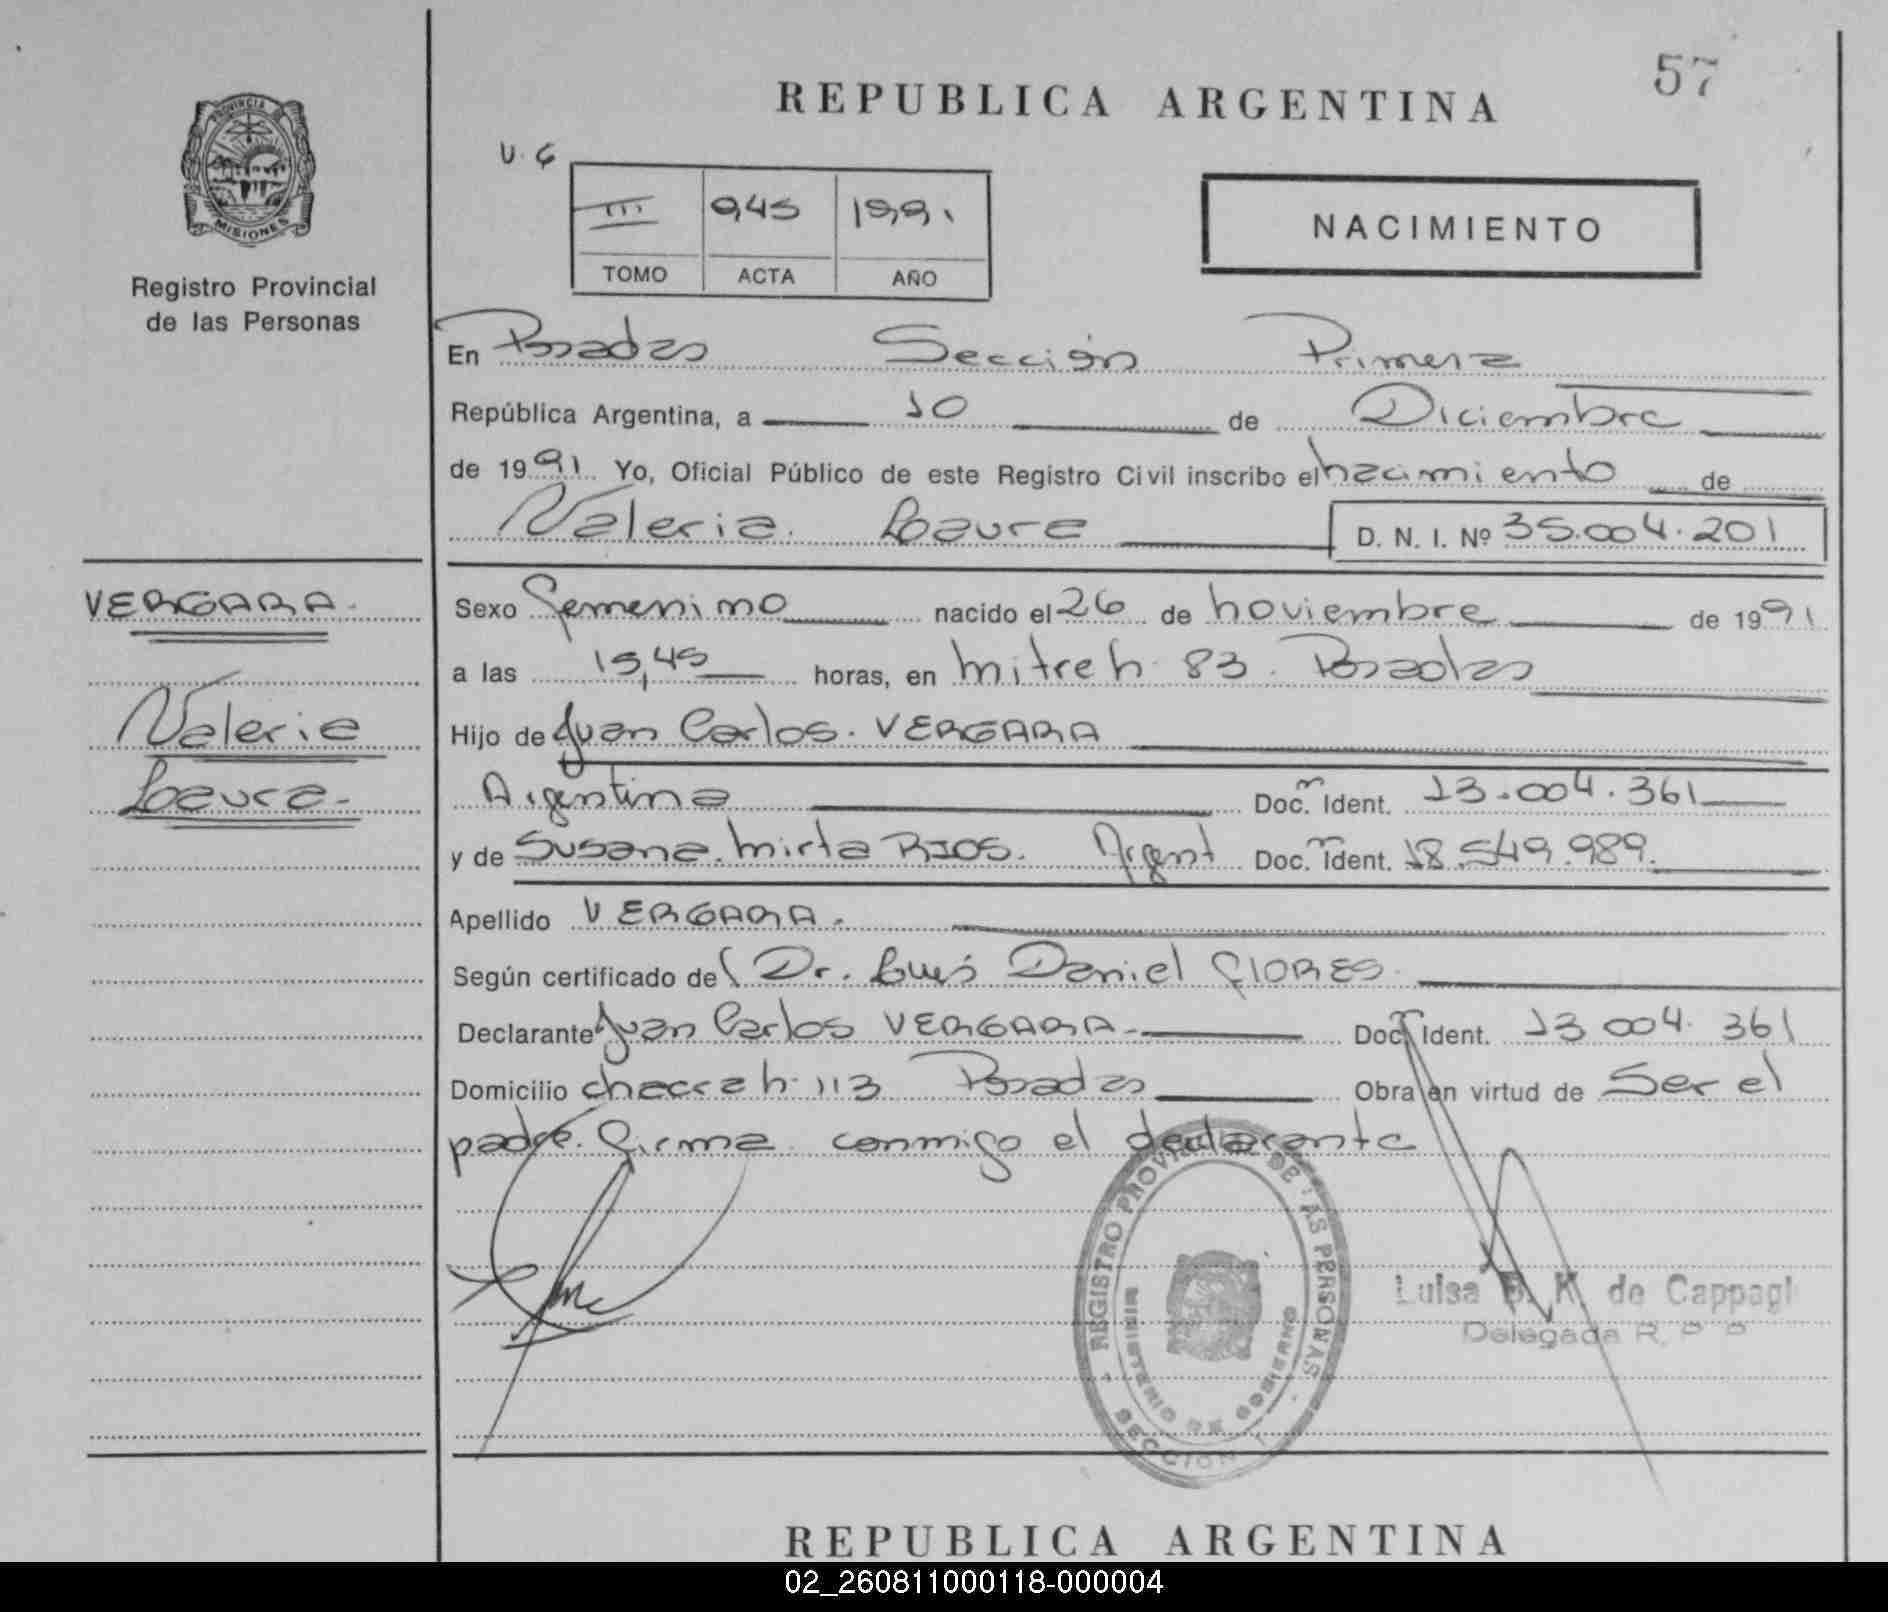 57
REPUBLICA ARGENTINA
PROVINCIA
MISIONES
Registro Provincial
de las Personas
U. 6
III 945 1991
TOMO ACTA AÑO
NACIMIENTO
En Posadas Sección Primera
República Argentina, a 10 de Diciembre
de 1991 Yo, Oficial Público de este Registro Civil inscribo el nacimiento de
Valeria Laura D. N. I. Nº 35.004.201
VERGARA.
Valeria
Laura-
Sexo Femenino nacido el 26 de noviembre de 1991
a las 15,45 horas, en mitre n 83. Posadas
Hijo de Juan Carlos. VERGARA
Argentina Doc. Ident. 13.004.361
y de Susana. mirta RIOS. Argent Doc. Ident. 18.549.989.
Apellido VERGARA.
Según certificado del Dr. Luis Daniel FLORES.
Declarante Juan Carlos VERGARA Doc. Ident. 13 004. 361
Domicilio chacra n. 113 Posadas Obra en virtud de Ser el
padre. Firma conmigo el declarante
REGISTRO PROVINCIAL DE LAS PERSONAS
MINISTERIO DE GOBIERNO
SECCION 1
Luisa K. de Cappagl
Delegada R. P P
REPUBLICA ARGENTINA
02_260811000118-000004